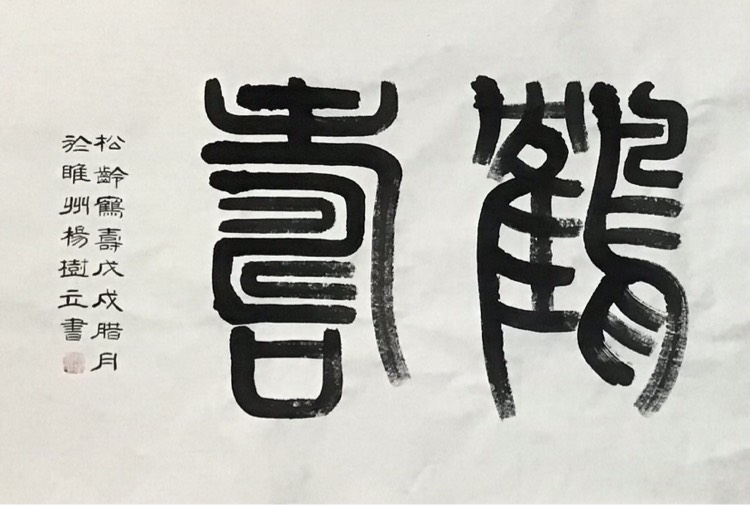 鶴壽
松齡鶴壽戊戌腊月
於睢州楊樹立書